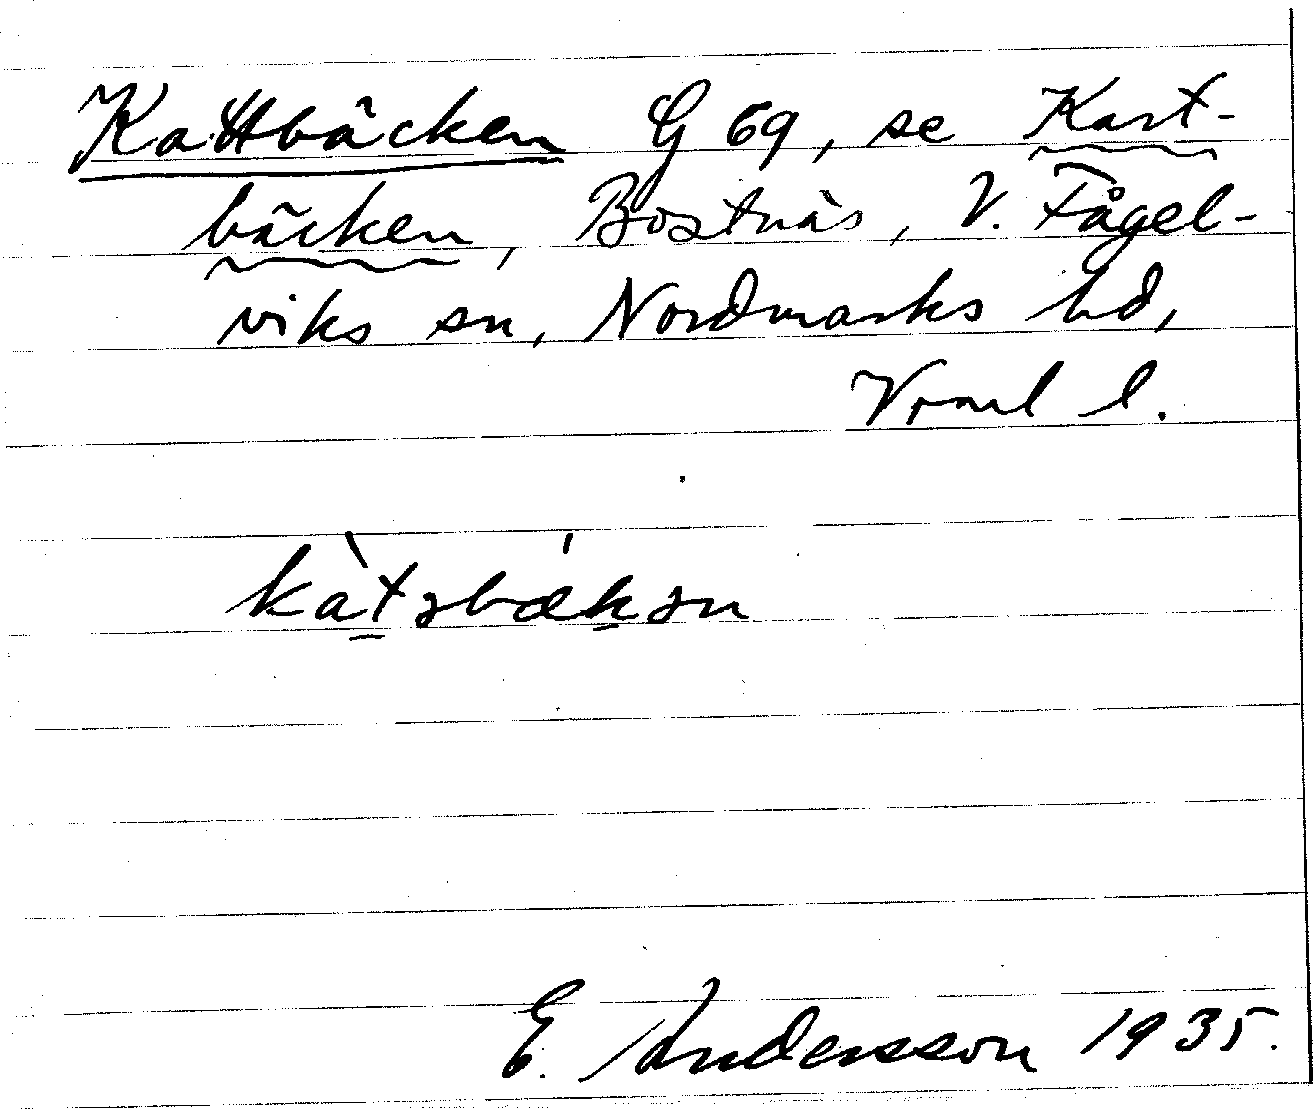 Kattbäcken G 69, se Kart-
bäcken, Bostnäs, V. Fågel-
viks sn, Nordmarks hd,
Vrml l.
kàt̠əbǽk̠ən
E. Andersson 1935.